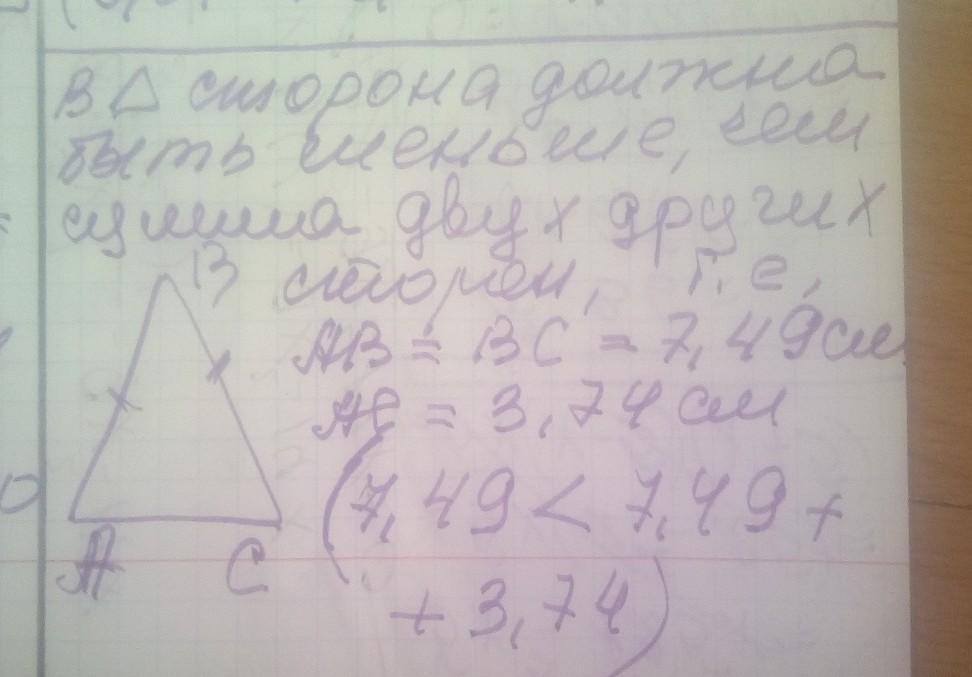 В △ сторона должна
быть меньше, чем
сумма двух других
В сторон, т.е,
AB = BC = 7,49см
AC = 3,74 см
(7,49 < 7,49 +
A C
+ 3,74)